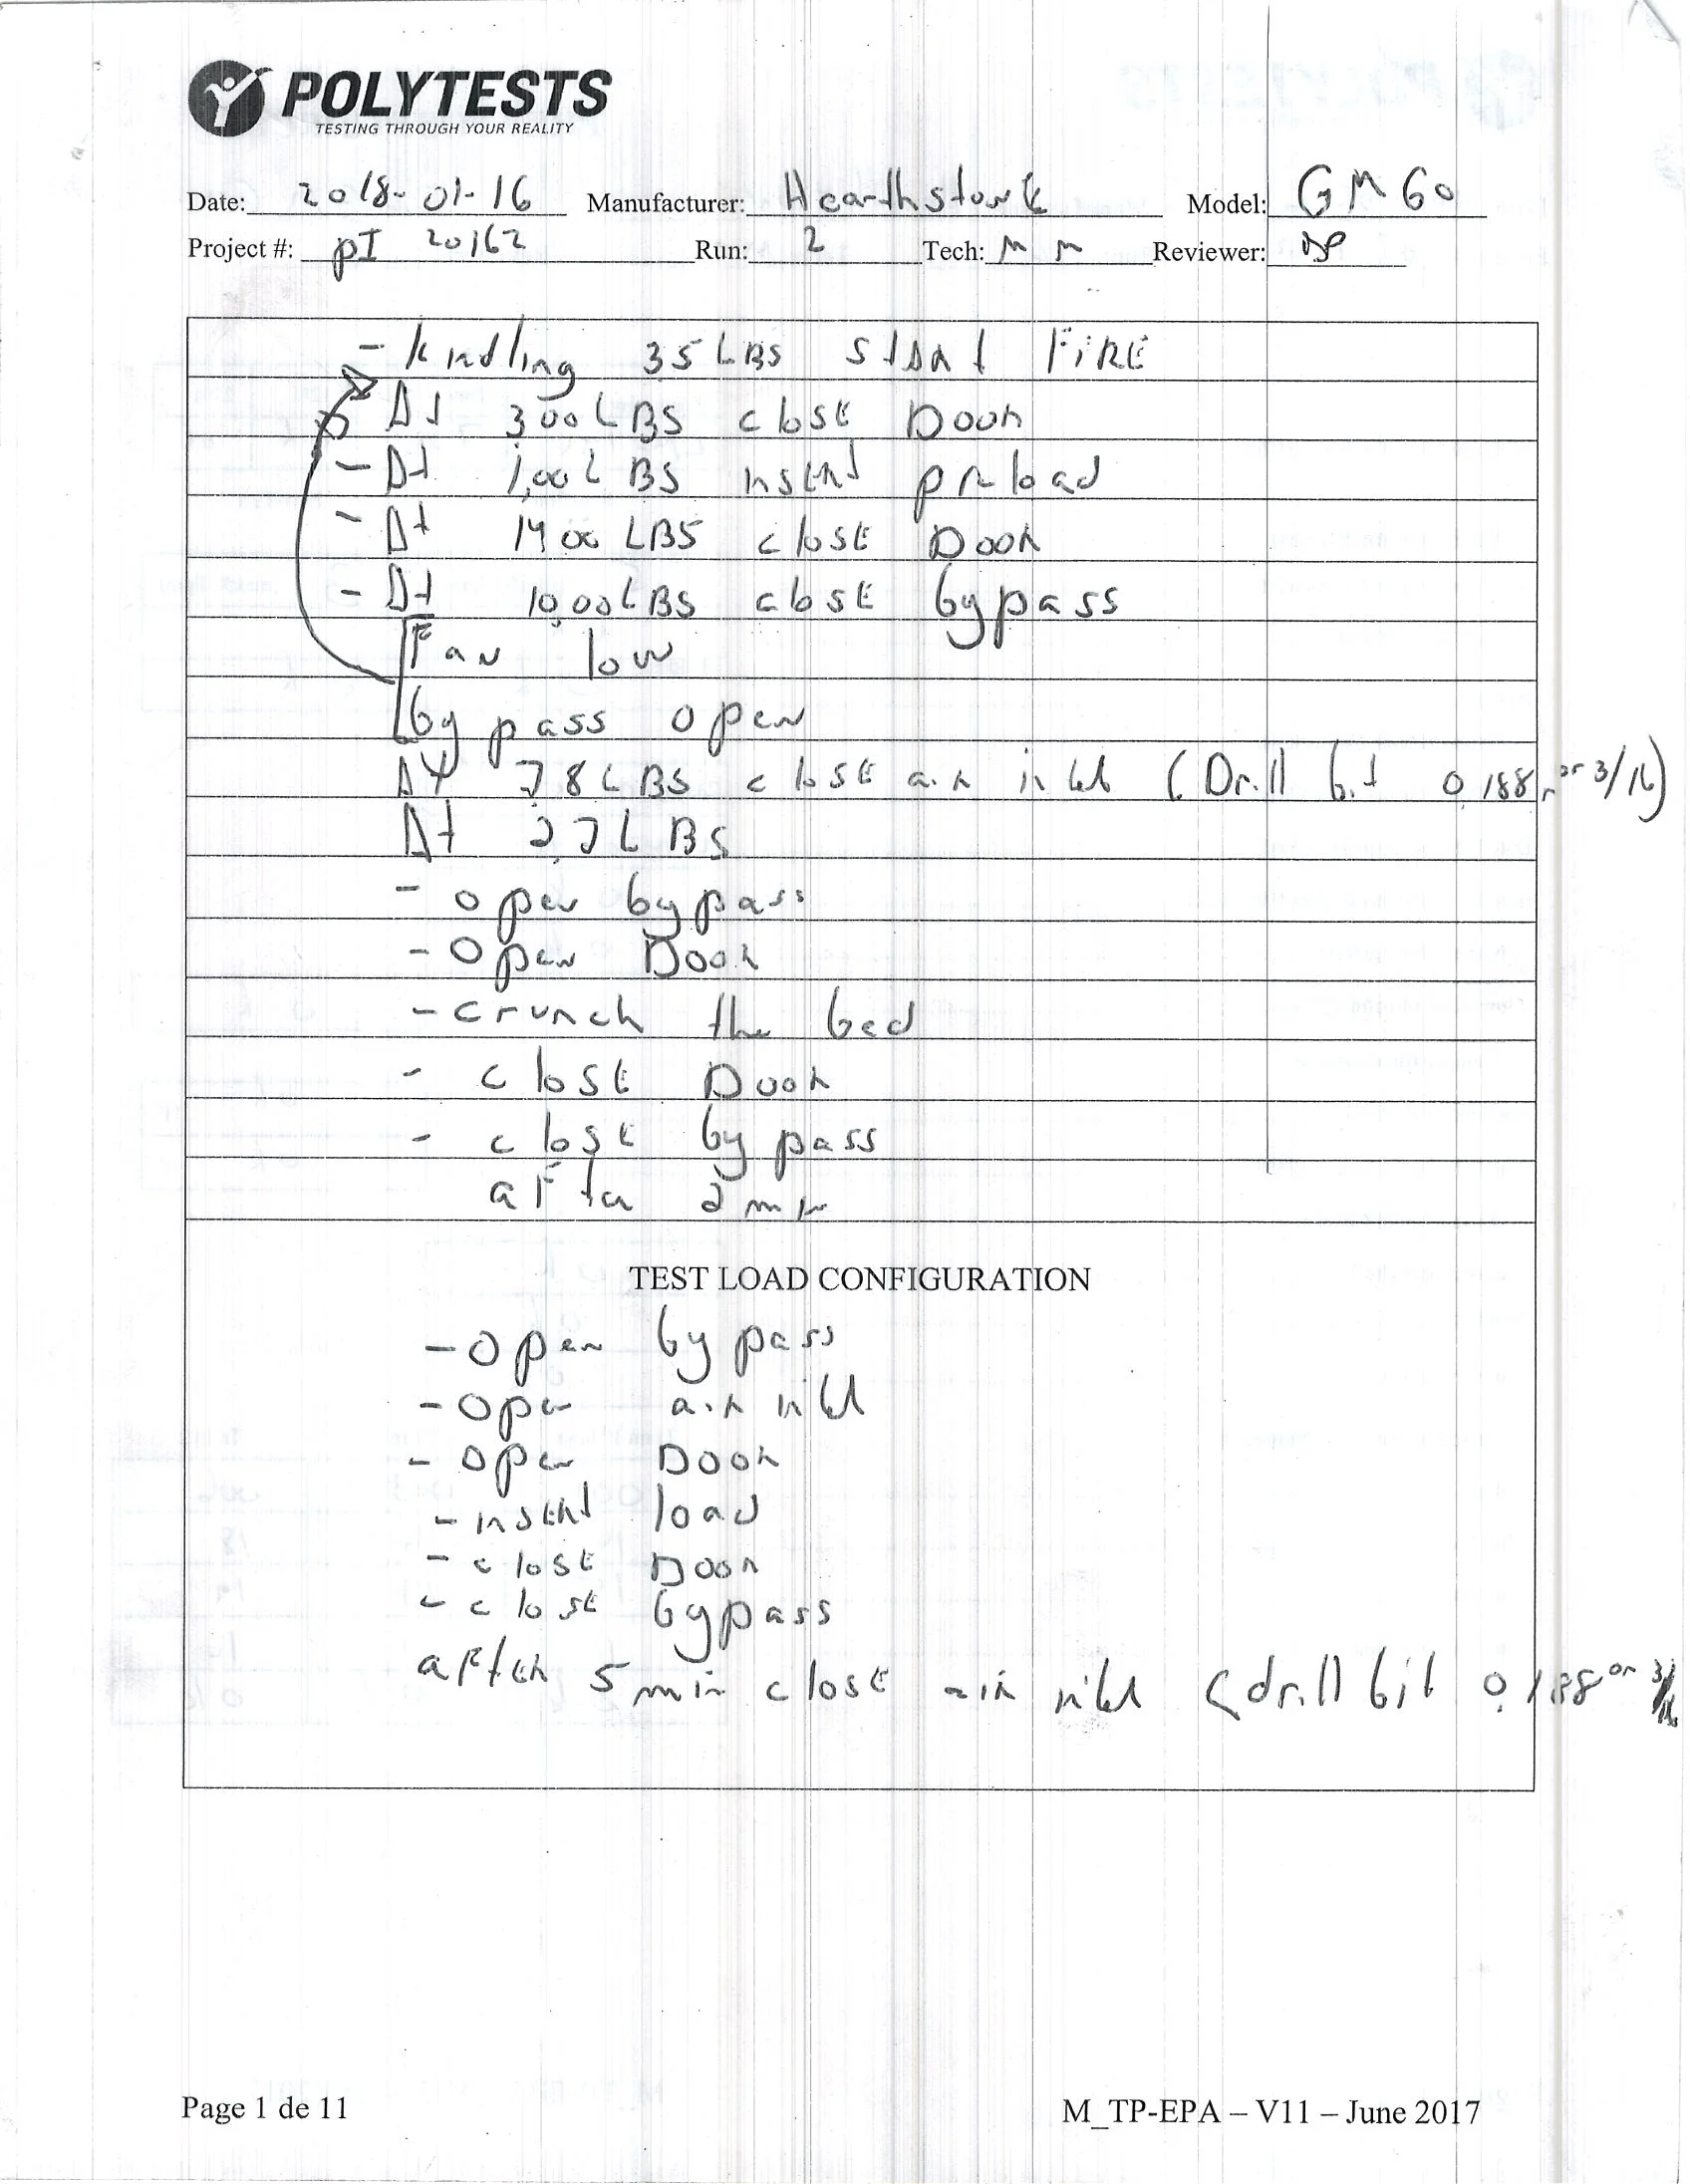 POLYTESTS
TESTING THROUGH YOUR REALITY
Date: 2018-01-16 Manufacturer: Hearthstonk Model: GM60
Project #: pI 20162 Run: 2 Tech: MM Reviewer: DP
- kindling 35 LBS start FIRE
At 300 LBS closE Door
- At 1,00 LBS insert preload
- At 1400 LBS closE Door
- At 10,00 LBS closE bypass
Fan low
bypass open
At 78 LBS closE air inlet (Drill bit 0,188, or 3/16)
At 27 LBS
- open bypass
- Open Door
- crunch the bed
- closE Door
- closE bypass
aFter 2 min
TEST LOAD CONFIGURATION
- open bypass
- open air inlet
- open Door
- insert load
- closE Door
- closE bypass
aFtEr 5 min closE air inlet (drill bit 0,188 or 3/16
Page 1 de 11
M_TP-EPA – V11 – June 2017